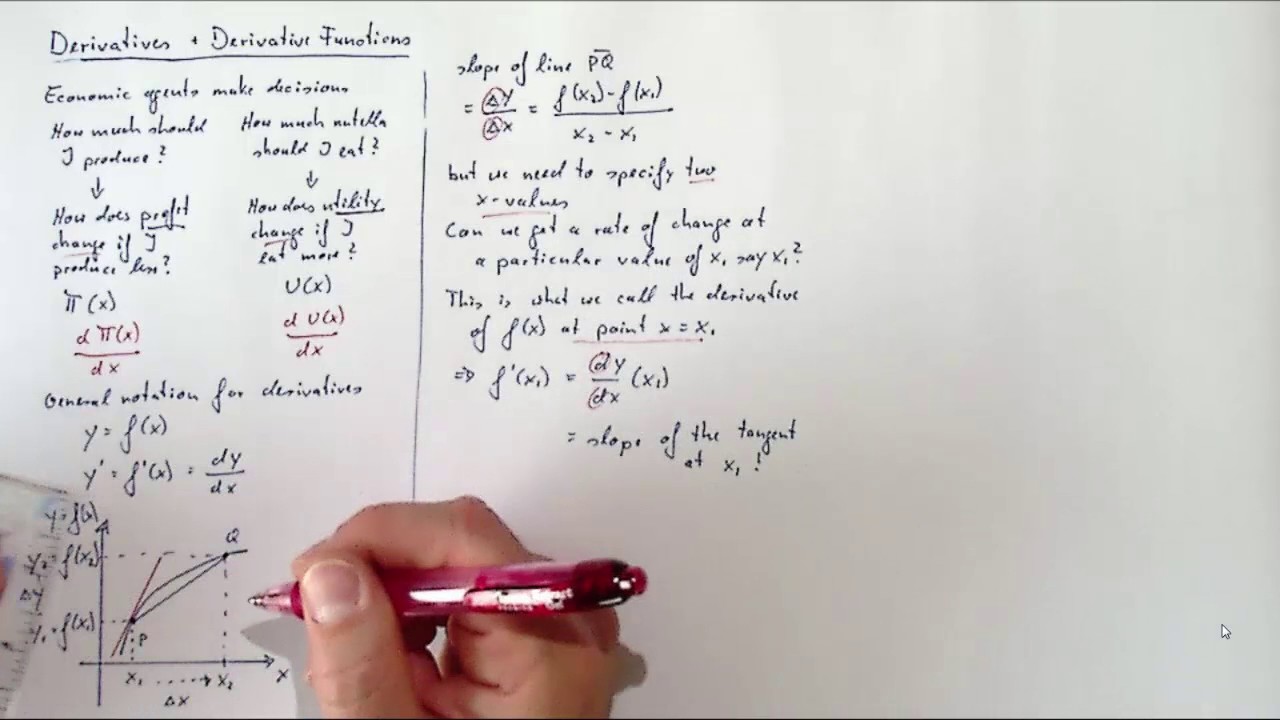 Derivatives + Derivative Functions
Economic agents make decisions
How much should
I produce?
↓
How does profit
change if I
produce less?
π(x)
d π(x)
dx
How much nutella
should I eat?
↓
How does utility
change if I
eat more?
U(x)
d U(x)
dx
General notation for derivatives
y = f(x)
y' = f'(x) = dy/dx
y=f(x)
y₂ = f(x₂)
Δy
y₁ = f(x₁)
Q
P
x₁ ----→ x₂
x
Δx
slope of line P̅Q̅
= Δy/Δx = f(x₂) - f(x₁)
x₂ - x₁
but we need to specify two
x-values
Can we get a rate of change at
a particular value of x, say x₁?
This is what we call the derivative
of f(x) at point x = x₁
⇒ f'(x₁) = dy/dx (x₁)
= slope of the tangent
at x₁ !